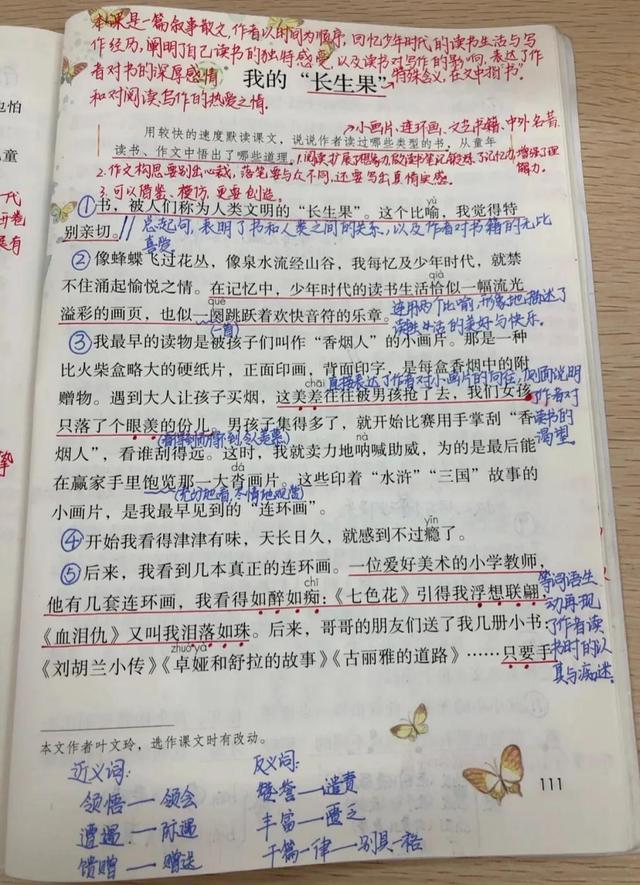 本课是一篇叙事散文,作者以时间为顺序,回忆少年时代的读书生活与写
作经历,阐明了自己读书的独特感受,以及读书对写作的影响,表达了作
者对书的深厚感情
和对阅读、写作的热爱之情.
我的“长生果”
特殊含义,在文中指“书”
小画片、连环画、文艺书籍、中外名著.
用较快的速度默读课文,说说作者读过哪些类型的书。从童年
读书、作文中悟出了哪些道理。
1.阅读扩展了想象力,做读书笔记锻炼了记忆力,增强了理
解力.
2.作文构思要别出心裁,落笔要与众不同,还要写出真情实感.
3.可以借鉴、模仿,更要创造.
yù
①书,被人们称为人类文明的“长生果”。这个比喻,我觉得特
别亲切。
总起句,表明了书和人类之间的关系,以及作者对书籍的无比
真爱
②像蜂蝶飞过花丛,像泉水流经山谷,我每忆及少年时代,就禁
qià
不住涌起愉悦之情。在记忆中,少年时代的读书生活恰似一幅流光
què
溢彩的画页,也似一阕跳跃着欢快音符的乐章。
(一首)
连用两个比喻,形象地描述了
读书生活的美好与快乐.
③我最早的读物是被孩子们叫作“香烟人”的小画片。那是一种
比火柴盒略大的硬纸片,正面印画,背面印字,是每盒香烟中的附
chāi
直接表达了作者对小画片的向往,侧面说明
了作者对
读书的
渴望.
赠物。遇到大人让孩子买烟,这美差往往被男孩抢了去,我们女孩
只落了个眼羡的份儿。男孩子集得多了,就开始比赛用手掌刮“香
烟人”,看谁刮得远。这时,我就卖力地呐喊助威,为的是最后能
nà
dá
在赢家手里饱览那一大沓画片。这些印着“水浒”“三国”故事的
(充分地看,尽情地观赏)
小画片,是我最早见到的“连环画”。
yǐn
④开始我看得津津有味,天长日久,就感到不过瘾了。
⑤后来,我看到几本真正的连环画。一位爱好美术的小学教师,
chī
他有几套连环画,我看得如醉如痴:《七色花》引得我浮想联翩,
《血泪仇》又叫我泪落如珠。后来,哥哥的朋友们送了我几册小书:
等词语生
动再现
了作者读
书时的认
真与痴迷.
zhuó yà
《刘胡兰小传》《卓娅和舒拉的故事》《古丽雅的道路》……只要手
本文作者叶文玲,选作课文时有改动。
近义词:
领悟——领会
遭遇——际遇
馈赠——赠送
反义词:
赞誉——谴责
丰富——匮乏
千篇一律——别具一格
111